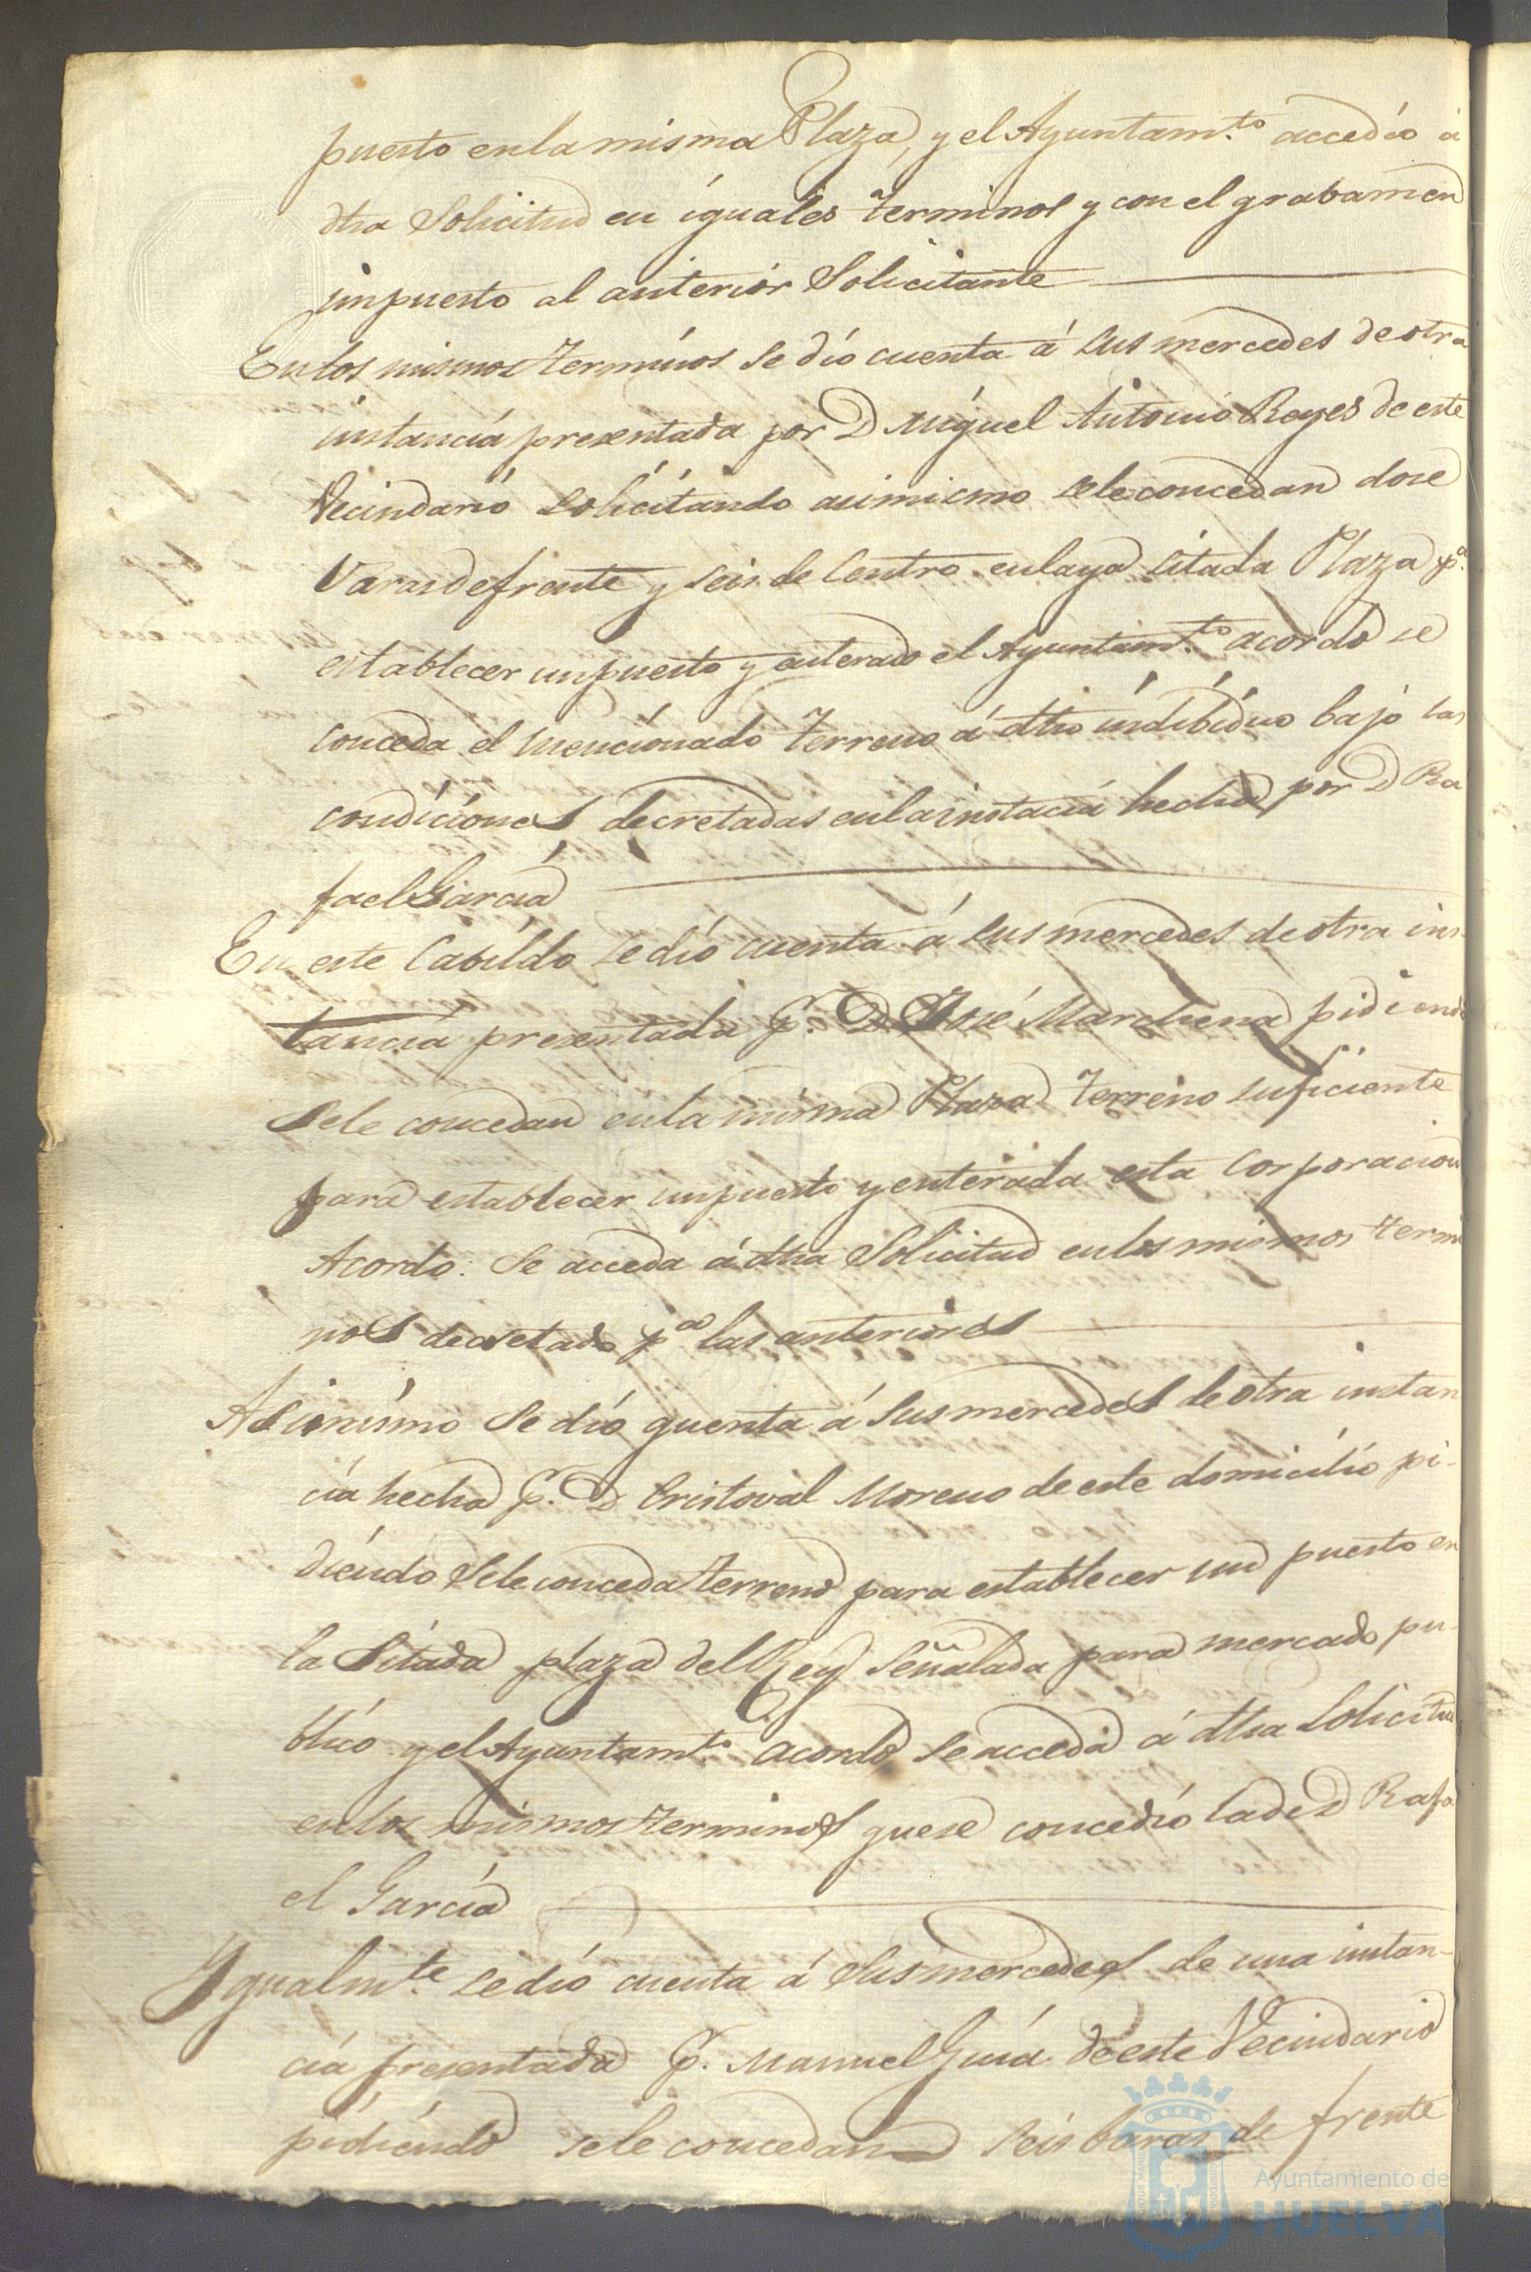 puesto en la misma Plaza, y el Ayuntam.to accedio á
dha Solicitud en iguales terminos y con el grabamen
impuesto al anterior Solicitante
En los mismos terminos se dio cuenta á sus mercedes de otra
instancia presentada por D Miguel Antonio Reyes de este
Vecindario solicitando asimismo se le concedan dose
Varas de frente y seis de Centro en la ya citada Plaza p.a
establecer un puesto y enterado el Ayuntam.to acordo se
conceda el mencionado terreno á dho indibiduo bajo las
condiciones decretadas en la instacia hecha por D Ra
fael Garcia
En este Cabildo se dio cuenta á sus mercedes de otra ins-
tancia presentada P. D José Marchena pidiendo
se le concedan en la misma Plaza terreno suficiente
para establecer un puesto y enterada esta Corporacion
Acordo: Se acceda á dha Solicitud en los mismos termi
nos decretado p.a las anteriores
Asimismo se dio quenta á sus mercedes de otra instan
cia hecha P. D Cristoval Moreno de este domicilio pi-
diendo se le conceda terreno para establecer un puesto en
la Sitada plaza del Rey señalada para mercado pu-
blico y el Ayuntamt.o acordo se acceda á dha Solicitud
en los mismos terminos que se concedio la de D Rafa
el Garcia
Ygualm.te se dio cuenta á sus mercedes de una instan-
cia presentada P. Manuel Guia de este Vecindario
pidiendo se le concedan seis baras de frente
Ayuntamiento de
HUELVA